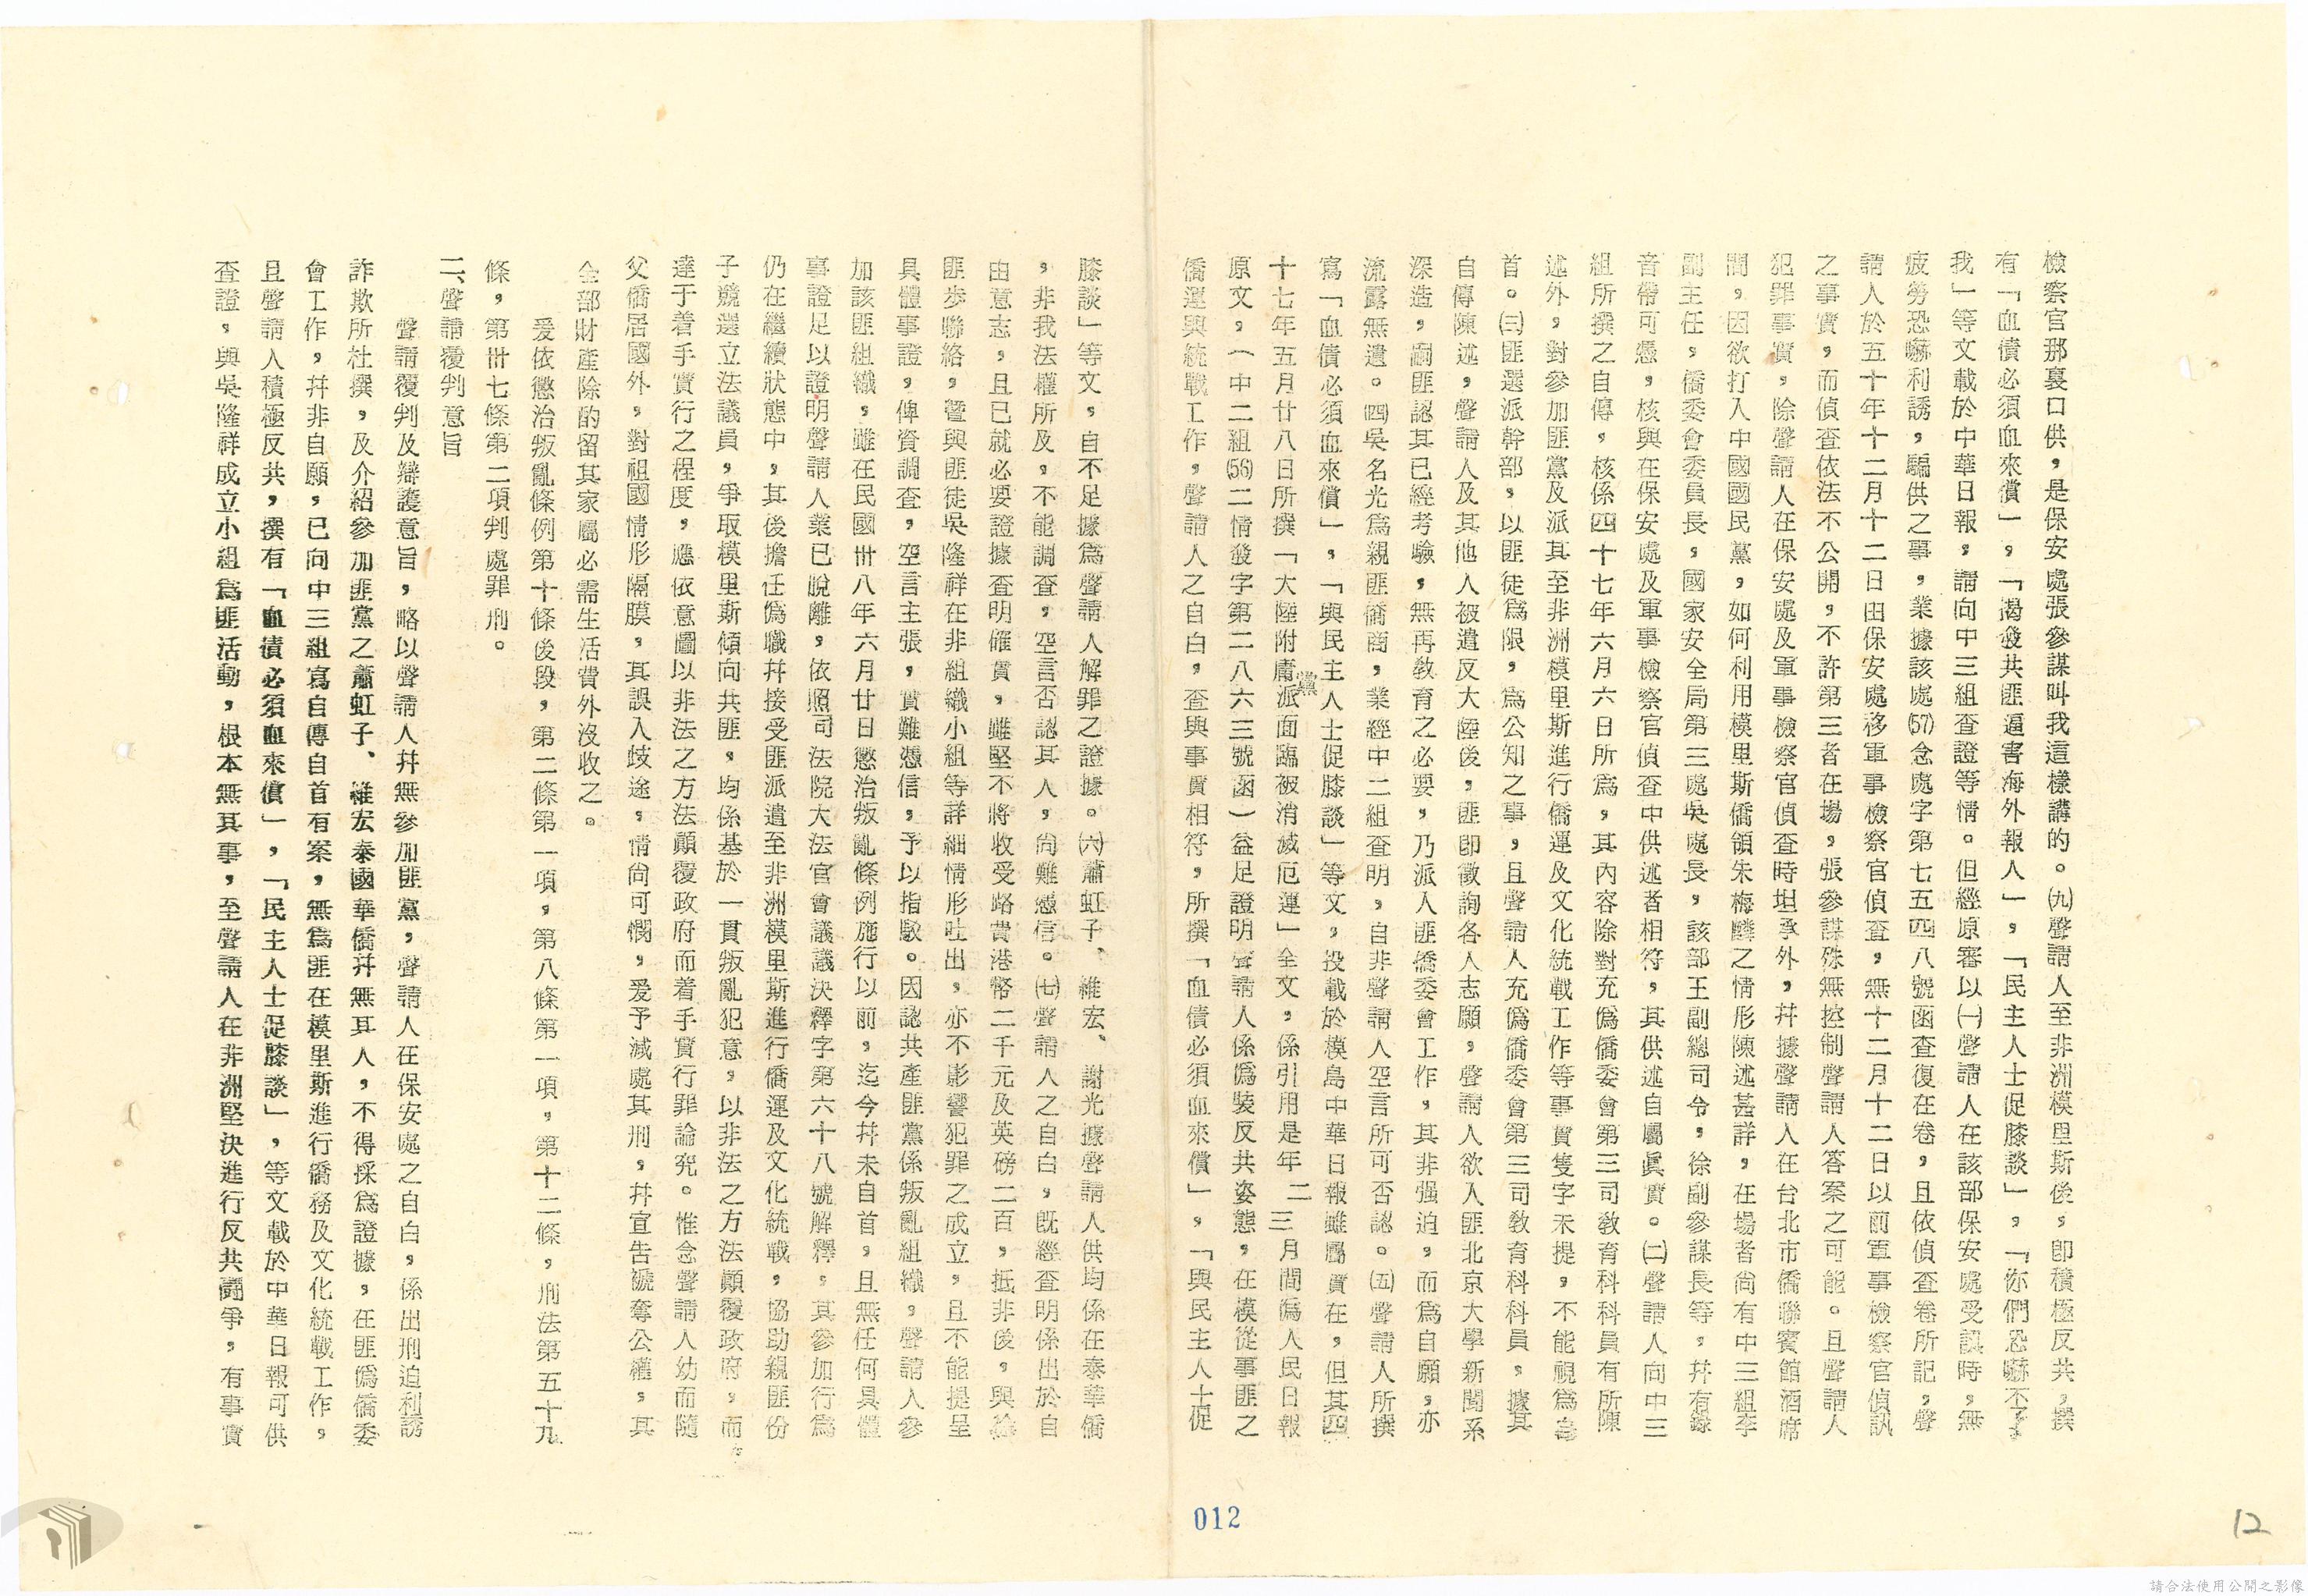 檢察官那裏口供，是保安處張參謀叫我這樣講的。㈨聲請人至非洲模里斯後，卽積極反共，撰
有「血債必須血來償」，「揭發共匪逼害海外報人」，「民主人士促膝談」，「你們恐嚇不了
我」等文載於中華日報，請向中三組查證等情。但經原審以㈠聲請人在該部保安處受訊時，無
疲勞恐嚇利誘，騙供之事，業據該處(57)念處字第七五四八號函查復在卷，且依偵查卷所記，聲
請人於五十年十二月十二日由保安處移軍事檢察官偵查，無十二月十二日以前軍事檢察官偵訊
之事實，而偵查依法不公開，不許第三者在場，張參謀殊無控制聲請人答案之可能。且聲請人
犯罪事實，除聲請人在保安處及軍事檢察官偵查時坦承外，幷據聲請人在台北市僑聯賓館酒席
間，因欲打入中國國民黨，如何利用模里斯僑領朱梅麟之情形陳述甚詳，在場者尙有中三組李
副主任，僑委會委員長，國家安全局第三處吳處長，該部王副總司令，徐副參謀長等，幷有錄
音帶可憑，核與在保安處及軍事檢察官偵查中供述者相符，其供述自屬眞實。㈡聲請人向中三
組所撰之自傳，核係四十七年六月六日所爲，其內容除對充僞僑委會第三司敎育科科員有所陳
述外，對參加匪黨及派其至非洲模里斯進行僑運及文化統戰工作等事實隻字未提，不能視爲自
首。㈢匪選派幹部，以匪徒爲限，爲公知之事，且聲請人充僞僑委會第三司敎育科科員，據其
自傳陳述，聲請人及其他人被遣反大陸後，匪卽徵詢各人志願，聲請人欲入匪北京大學新聞系
深造，嗣匪認其已經考驗，無再敎育之必要，乃派人匪僑委會工作，其非强迫，而爲自願，亦
流露無遺。㈣吳名光爲親匪僑商，業經中二組查明，自非聲請人空言所可否認。㈤聲請人所撰
寫「血債必須血來償」，「與民主人士促膝談」等文，投載於模島中華日報雖屬實在，但其四
十七年五月廿八日所撰「大陸附庸黨派面臨被消滅厄運」全文，係引用是年二三月間僞人民日報
原文，（中二組(56)二情發字第二八六三號函）益足證明聲請人係僞裝反共姿態，在模從事匪之
僑運與統戰工作，聲請人之自白，查與事實相符，所撰「血債必須血來償」，「與民主人士促
膝談」等文，自不足據爲聲請人解罪之證據。㈥蕭虹子、維宏、謝光據聲請人供均係在泰華僑
，非我法權所及，不能調查，空言否認其人，尙難憑信。㈦聲請人之自白，旣經查明係出於自
由意志，且已就必要證據查明確實，雖堅不將收受路費港幣二千元及英磅二百，抵非後，與
匪步聯絡，曁與匪徒吳隆祥在非組織小組等詳細情形吐出，亦不影響犯罪之成立，且不能提呈
具體事證，俾資調查，空言主張，實難憑信，予以指駁。因認共產匪黨係叛亂組織，聲請人參
加該匪組織，雖在民國卅八年六月廿日懲治叛亂條例施行以前，迄今幷未自首，且無任何具體
事證足以證明聲請人業已脫離，依照司法院大法官會議議決釋字第六十八號解釋，其參加行爲
仍在繼續狀態中，其後擔任僞職幷接受匪派遣至非洲模里斯進行僑運及文化統戰，協助親匪份
子競選立法議員，爭取模里斯傾向共匪，均係基於一貫叛亂犯意，以非法之方法顚覆政府，而
達于着手實行之程度，應依意圖以非法之方法顚覆政府而着手實行罪論究。惟念聲請人幼而隨
父僑居國外，對祖國情形隔膜，其誤入歧途，情尙可憫，爰予減處其刑，幷宣告褫奪公權，其
全部財產除酌留其家屬必需生活費外沒收之。
爰依懲治叛亂條例第十條後段，第二條第一項，第八條第一項，第十二條，刑法第五十九
條，第卅七條第二項判處罪刑。
二、聲請覆判意旨
聲請覆判及辯護意旨，略以聲請人幷無參加匪黨，聲請人在保安處之自白，係出刑迫利誘
詐欺所杜撰，及介紹參加匪黨之蕭虹子、維宏泰國華僑幷無其人，不得採爲證據，在匪僞僑委
會工作，幷非自願，已向中三組寫自傳自首有案，無爲匪在模里斯進行僑務及文化統戰工作，
且聲請人積極反共，撰有「血債必須血來償」，「民主人士促膝談」，等文載於中華日報可供
查證，與吳隆祥成立小組爲匪活動，根本無其事，至聲請人在非洲堅決進行反共鬪爭，有事實
012
12
請合法使用公開之影像